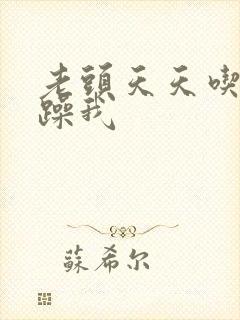 老頭天天喫
躁我
蘇希尔